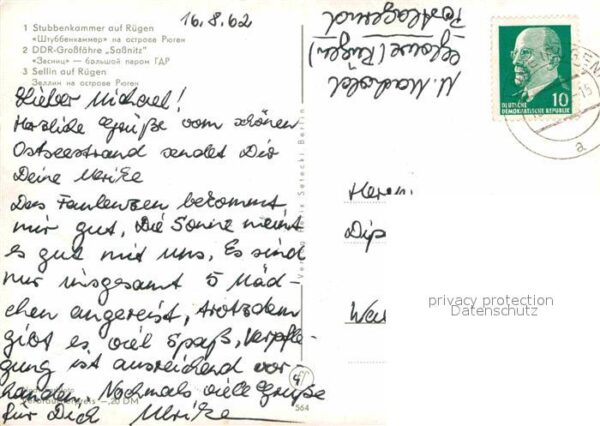 16.8.62
1 Stubbenkammer auf Rügen
«Штуббенкаммер» на острове Рюген
2 DDR-Großfähre „Saßnitz"
«Засниц» — большой паром ГДР
3 Sellin auf Rügen
Зеллин на острове Рюген
Lieber Michael!
Herzliche Grüße vom schönen
Ostseestrand sendet Dir
Deine Ulrike
Das Faulenzen bekommt
mir gut, Die Sonne meint
es gut mit uns, Es sind
nur insgesamt 5 Mäd-
chen angereist, trotzdem
gibt es viel Spaß, Verpfle-
gung ist ausreichend vor-
handen. Nochmals viele Grüße
für Dich Ulrike
-,20 DM
564
Berlin
U.
Glowe (Rügen)
Postlagernd
10
DEUTSCHE
DEMOKRATISCHE REPUBLIK
a
Herrn
Dip
privacy protection
Datenschutz